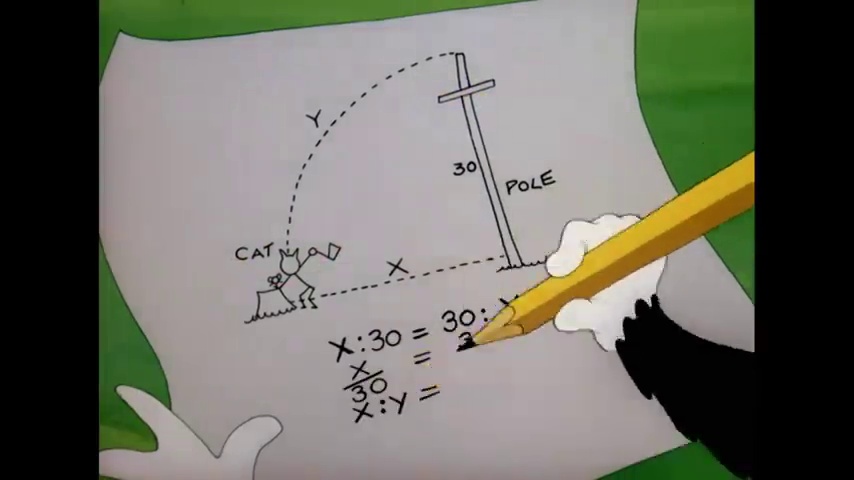 Y
30
POLE
CAT
X
X:30 = 30:
X/30 =
X:Y =